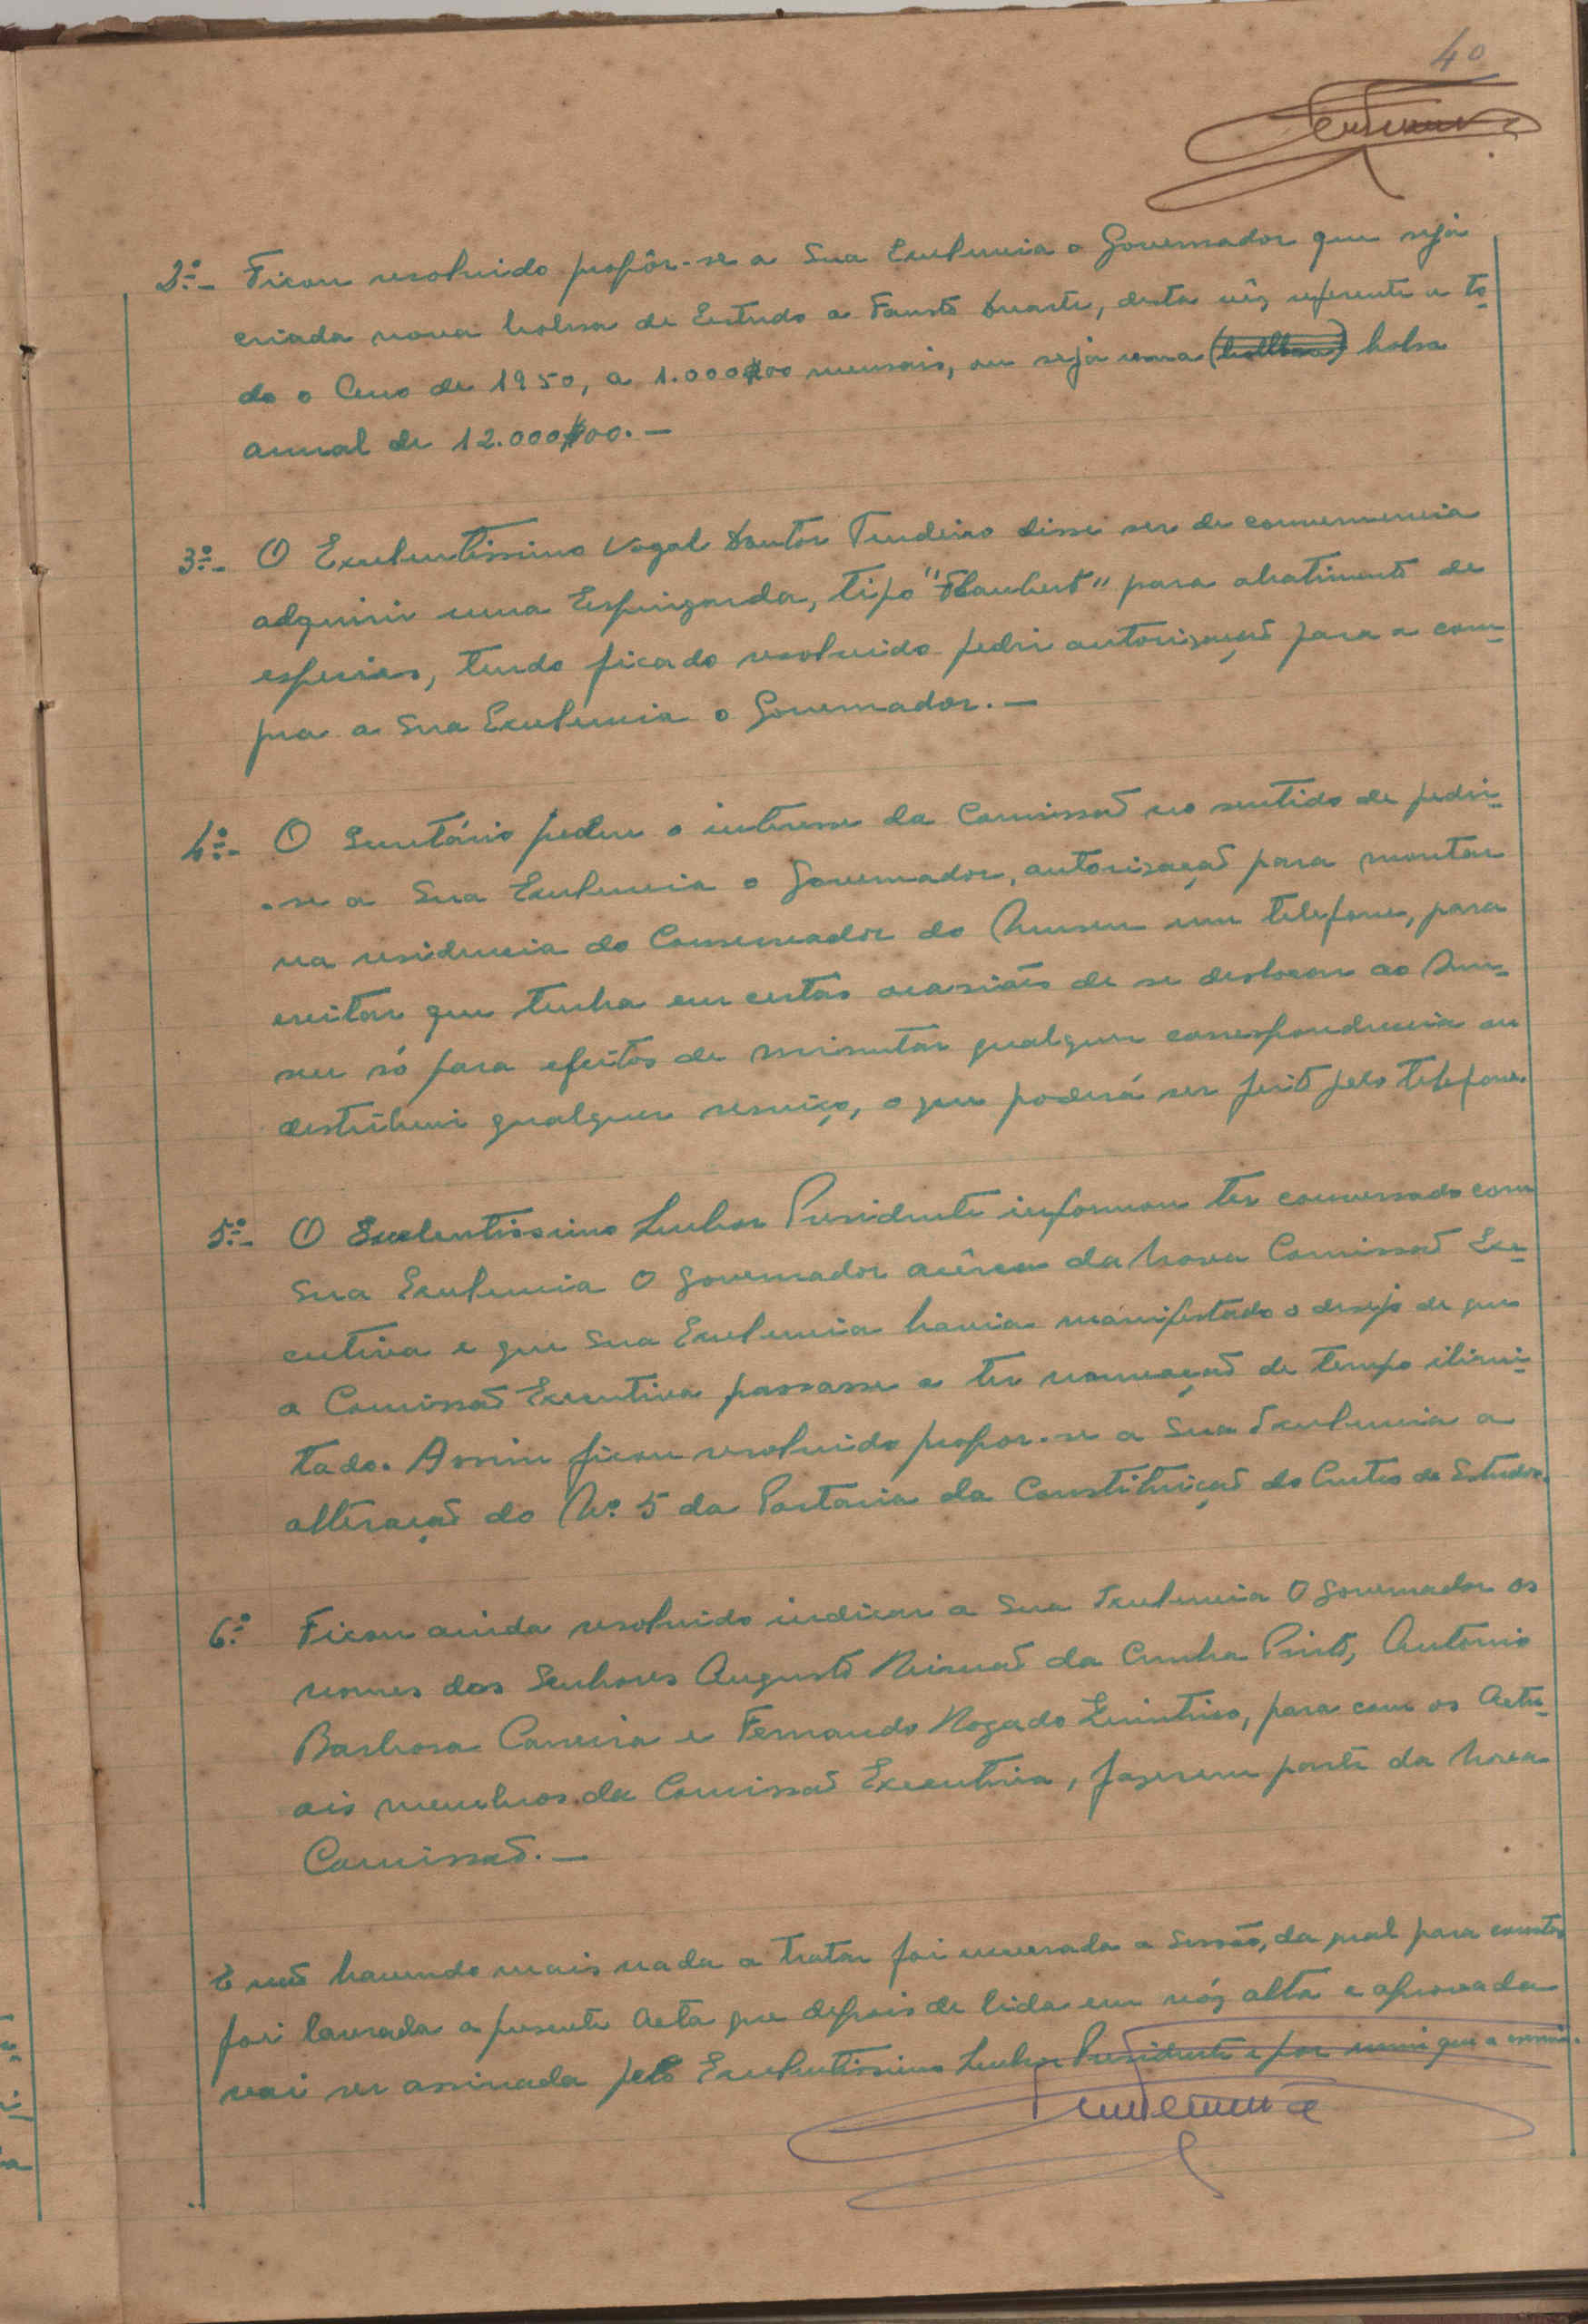 40
2º- Ficou resolvido propôr-se a Sua Excelencia o Governador que seja
criada nova bolsa de Estudo a Fausto Duarte, desta vêz referente a to-
do o Ano de 1950, a 1.000$00 mensais, ou seja uma bolsa
anual de 12.000$00.—
3º- O Excelentissimo Vogal Doutor Tendeiro disse ser de conveniencia
adquirir uma Espingarda, tipo "Flaubert" para abatimento de
especies, tendo ficado resolvido pedir autorização para a com-
pra a Sua Excelencia o Governador.—
4º- O Secretário pediu o interesse da Comissão no sentido de pedir-
-se a Sua Excelencia o Governador, autorização para montar
na residencia do Conservador do Museu um telefone, para
evitar que tenha em certas ocasiões de se deslocar ao Mu-
seu só para efeitos de minutar qualquer correspondencia ou
destribuir qualquer serviço, o que poderá ser feito pelo telefone.
5º- O Excelentissimo Senhor Presidente informou ter conversado com
Sua Excelencia O Governador acêrca da Nova Comissão Exe-
cutiva e que Sua Excelencia havia manifestado o desejo de que
a Comissão Executiva passasse a ter nomeação de tempo ilimi-
tado. Assim ficou resolvido propor-se a Sua Excelencia a
alteração do Nº 5 da Portaria da Constituição do Centro de Estudos.
6º Ficou ainda resolvido indicar a Sua Excelencia O Governador os
nomes dos Senhores Augusto Reimão da Cunha Pinto, António
Barbosa Carreira e Fernando Rogado Quintino, para com os Actu-
ais membros da Comissão Executiva, fazerem parte da Nova
Comissão.—
E não havendo mais nada a tratar foi encerrada a Sessão, da qual para constar
foi lavrada a presente Acta que depois de lida em vóz alta e aprovada
vai ser assinada pelo Excelentissimo Senhor Presidente e por mim que a escrevi.